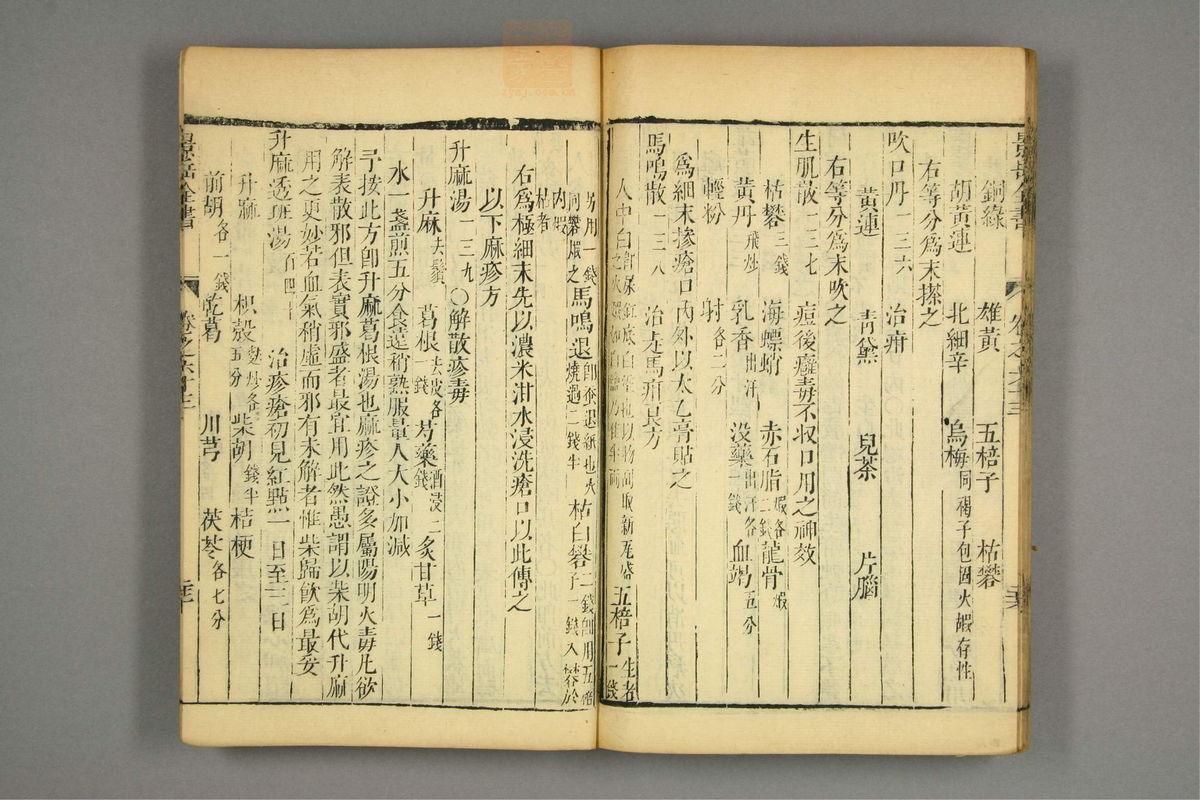 景岳全書 卷之六十三
銅綠 雄黃 五棓子 枯礬
胡黃連 北細辛 烏梅同褐子包固火煅存性
右等分爲末搽之
吹口丹一三六 治疳
黃連 靑黛 兒茶 片腦
右等分爲末吹之
生肌散一三七 痘後癰毒不收口用之神效
枯礬三錢 海螵蛸 赤石脂煅各二錢 龍骨煅
黃丹飛炒 乳香出汗 没藥出汗各一錢 血竭五分
輕粉 射各二分
爲細末摻瘡口內外以太乙膏貼之
馬鳴散一三八 治走馬疳良方
人中白 五棓子生者一錢
另用一錢同礬煅之 馬鳴退卽蚕退紙也火燒過二錢半 枯白礬二錢卽用五棓子一錢入礬於內煅枯者
右爲極細末先以濃米泔水浸洗瘡口以此傅之
以下麻疹方
升麻湯一三九 ○解散疹毒
升麻去鬚 葛根去皮各一錢 芍藥酒浸二錢 炙甘草一錢
水一盞煎五分食遠稍熱服量人大小加減
予按此方卽升麻葛根湯也麻疹之證多屬陽明火毒凡欲
解表散邪但表實邪盛者最宜用此然愚謂以柴胡代升麻
用之更妙若血氣稍虛而邪有未解者惟柴歸飮爲最妥
升麻透斑湯百四十 治疹瘡初見紅點一日至三日
升麻 枳殼麩炒各五分 柴胡錢半 桔梗
前胡各一錢 乾葛 川芎 茯苓各七分
景岳全書 卷之六十三